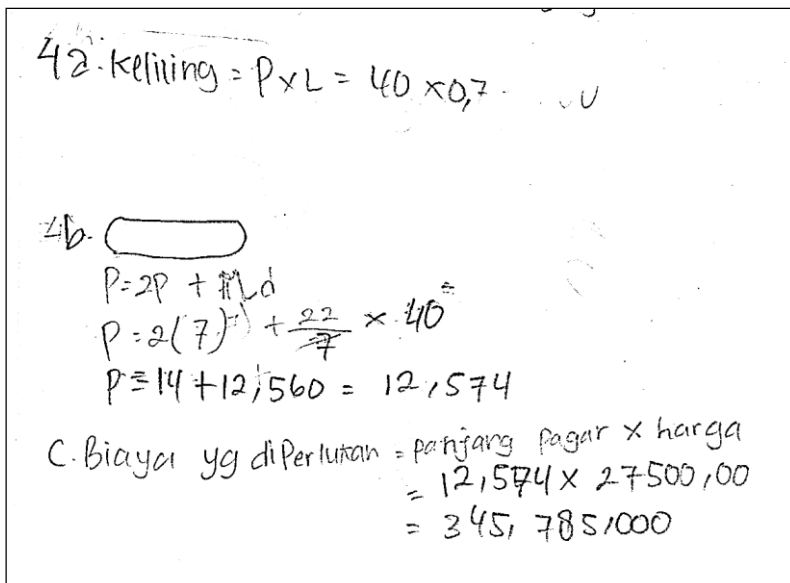 4a. Keliling = P x L = 40 x 0,7
4b.
P = 2P + πd
P = 2(7) + 22/7 x 40 =
P = 14 + 12,560 = 12,574
C. Biaya yg diperlukan = panjang pagar x harga
= 12,574 x 27500,00
= 345, 785,000